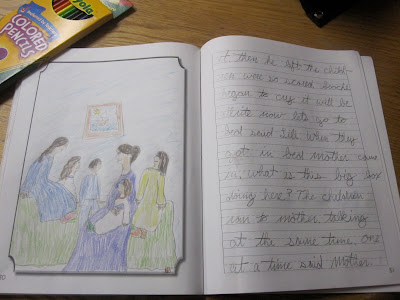 yola
COLORED
PENCILS
it then he left the child-
ren were so scared
began to cry it will be
now lets go to
bed said When they
got in bed mother came
in, what is this big box
doing here? The children
ran to mother talking
at the same time. one
at a time said Mother.